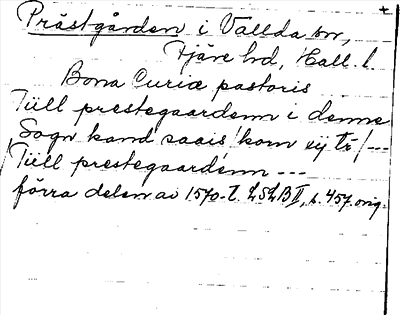 Prästgården i Vallda sn,
Fjäre hd, Hall. l.
Bona Curiæ pastoris
Tiill prestegaardenn i denne
Sogn kand saais korn vij tr /---
Tiill prestegaardenn ---
förra delen av 1570-t. LSLB II, s. 457. orig.